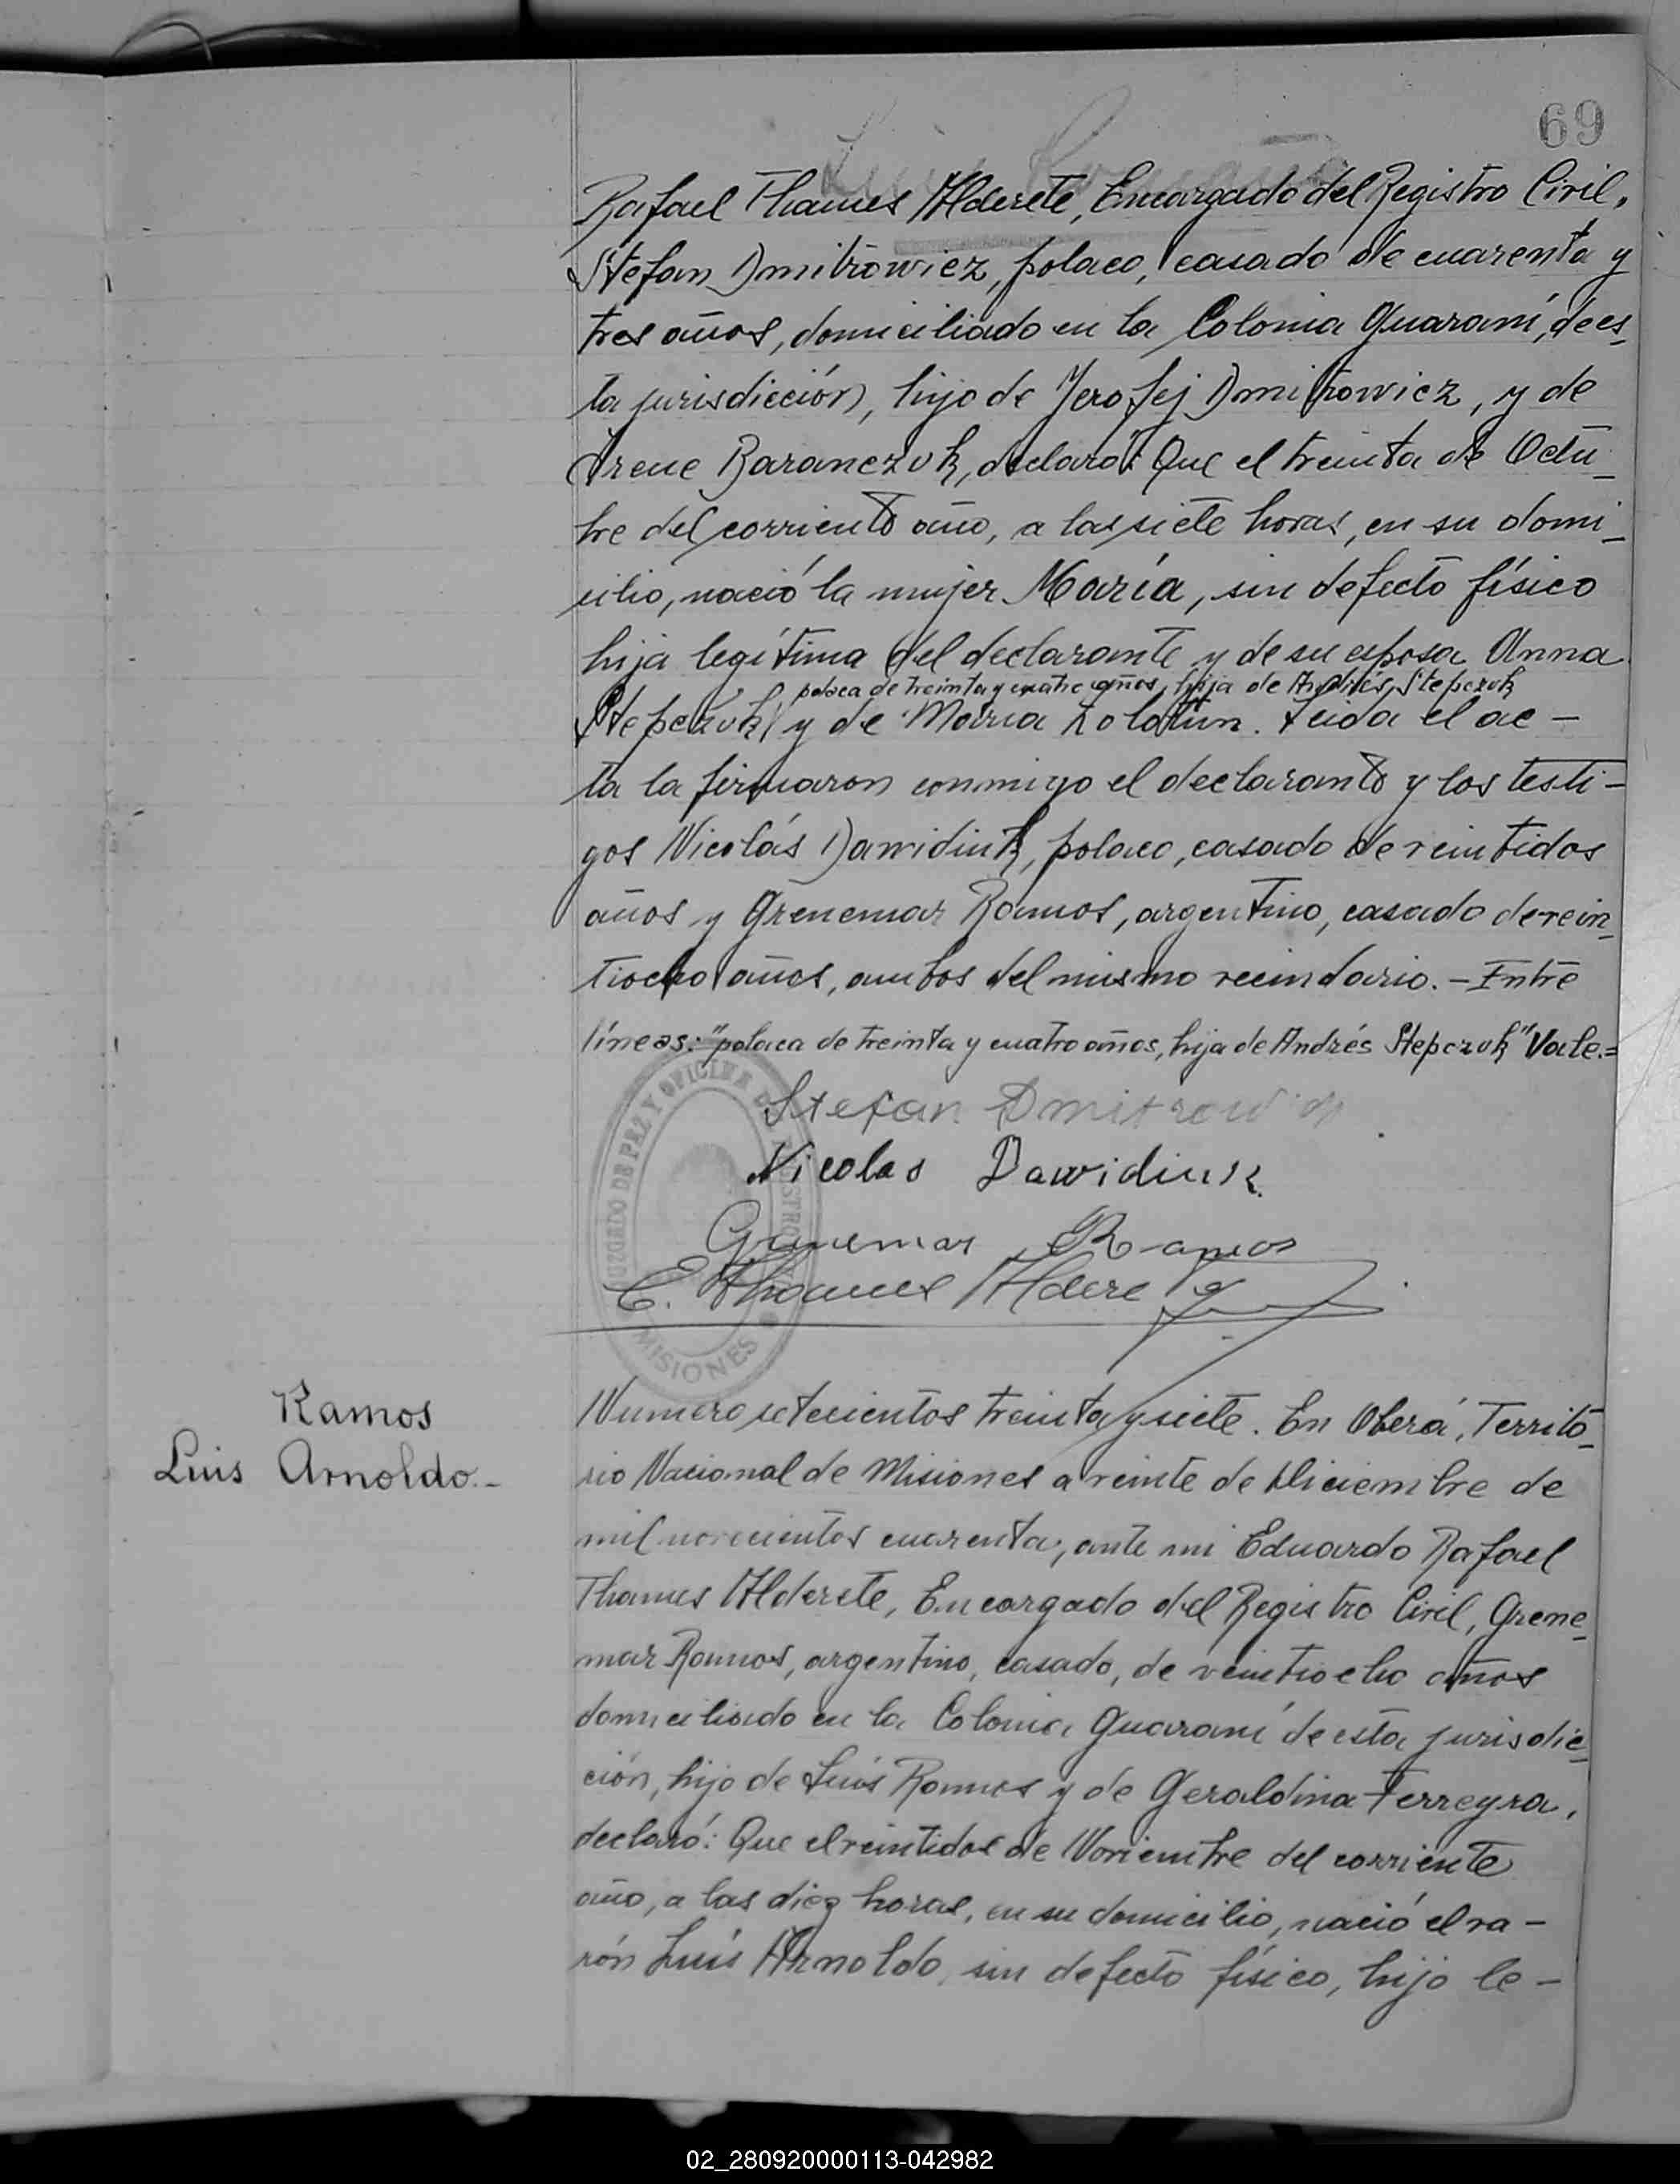 69
Rafael Thames Alderete, Encargado del Registro Civil,
Stefan Dmitrowicz, polaco, casado de cuarenta y
tres años, domiciliado en la Colonia Guaraní, de es-
ta jurisdicción, hijo de Jerofej Dmitrowicz, y de
Irene Baranczuk, declaró: Que el treinta de Octu-
bre del corriente año, a las siete horas, en su domi-
cilio, nació la mujer María, sin defecto físico
hija legítima del declarante y de su esposa Anna
polaca de treinta y cuatro años, hija de Andrés Stepczuk
Stepczuk y de María Zolotun. Leida el ac-
ta la firmaron conmigo el declarante y los testi-
gos Nicolás Dawidiuk, polaco, casado de veintidos
años y Grenemar Ramos, argentino, casado de vein-
tiocho años, ambos del mismo vecindario.- Entre
líneas: "polaca de treinta y cuatro años, hija de Andrés Stepczuk" Vale.=
Stefan Dmitrowicz
Nicolas Dawidiuk
Grenemar Ramos
E. Thames Alderete
JUZGADO DE PAZ Y OFICINA DEL REGISTRO CIVIL
MISIONES
Ramos
Luis Arnoldo.-
Numero setecientos treinta y siete. En Oberá, Territo-
rio Nacional de Misiones a veinte de Diciembre de
mil novecientos cuarenta, ante mi Eduardo Rafael
Thames Alderete, Encargado del Registro Civil, Grene-
mar Ramos, argentino, casado, de veintiocho años
domiciliado en la Colonia Guaraní de esta jurisdic-
ción, hijo de Luis Ramos y de Geraldina Ferreyra,
declaró: Que el veintidos de Noviembre del corriente
año, a las diez horas, en su domicilio, nació el va-
rón Luis Arnoldo, sin defecto físico, hijo le-
02_280920000113-042982